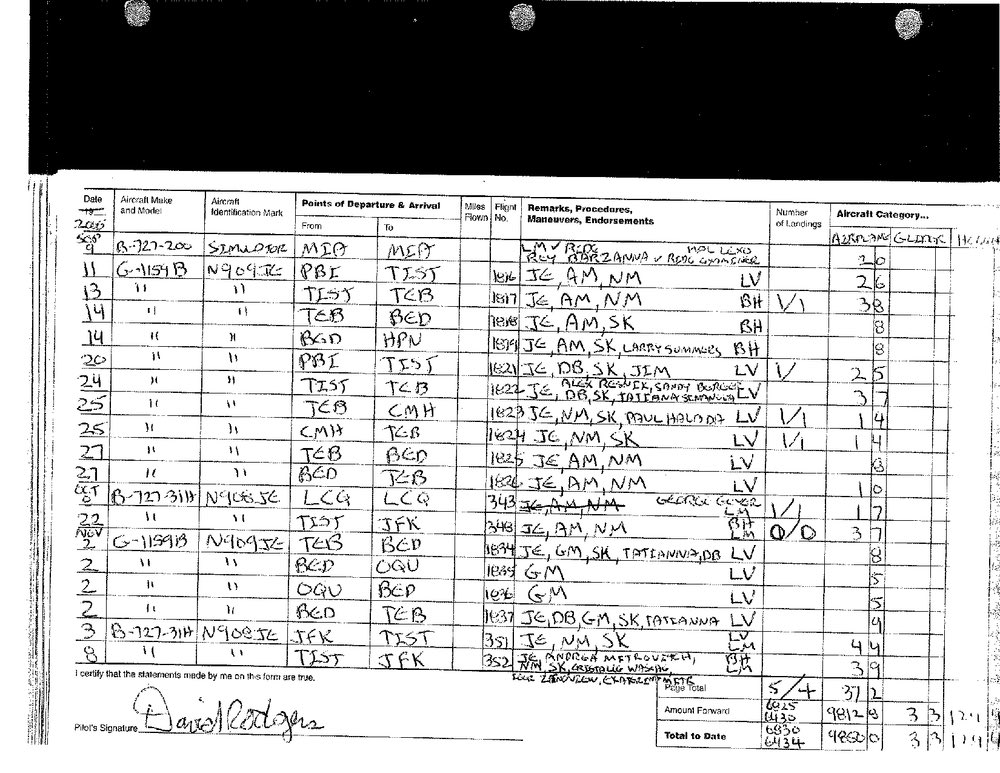 Date Aircraft Make and Model Aircraft Identification Mark Points of Departure & Arrival Miles Flown Flight No. Remarks, Procedures, Maneuvers, Endorsements Number of Landings Aircraft Category...
19
2005 From To AIRPLANE GLIDER
SEP
9 B-727-200 SIMULATOR MIA MIA LM 20
11 G-1159B N909JE PBI TIST 1816 JE, AM, NM LV 26
13 " " TIST TEB 1817 JE, AM, NM BH 1/1 38
14 " " TEB BED 1818 JE, AM, SK BH 8
14 " " BED HPN 1819 JE, AM, SK, LARRY SUMMERS BH 8
20 " " PBI TIST 1821 JE, DB, SK, JIM LV 1/ 25
24 " " TIST TEB 1822 JE, DB, SK, LV 37
25 " " TEB CMH 1823 JE, NM, SK, PAUL LV 1/1 14
25 " " CMH TEB 1824 JE, NM, SK LV 1/1 14
27 " " TEB BED 1825 JE, AM, NM LV 8
27 " " BED TEB 1826 JE, AM, NM LV 10
OCT
B-727-31H N908JE LCQ LCQ 343 JE, AM, NM GEORGE LM 1/1 17
22 " " TIST JFK 348 JE, AM, NM BH LM 0/0 37
NOV
2 G-1159B N909JE TEB BED 1834 JE, GM, SK, TATIANNA, DB LV 8
2 " " BED OQU 1835 GM LV 5
2 " " OQU BED 1836 GM LV 5
2 " " BED TEB 1837 JE, DB, GM, SK, TATIANNA LV 9
3 B-727-31H N908JE JFK TIST 351 JE, NM, SK LV LM 44
8 " " TIST JFK 352 JE, ANDREA MITROVICH, NM, SK, BH LM 39
I certify that the statements made by me on this form are true.
Page Total 5/4 37 2
Pilot's Signature David Rodgers
Amount Forward 6825 6430 9812 8 3 3
Total to Date 6830 6434 9850 0 3 3